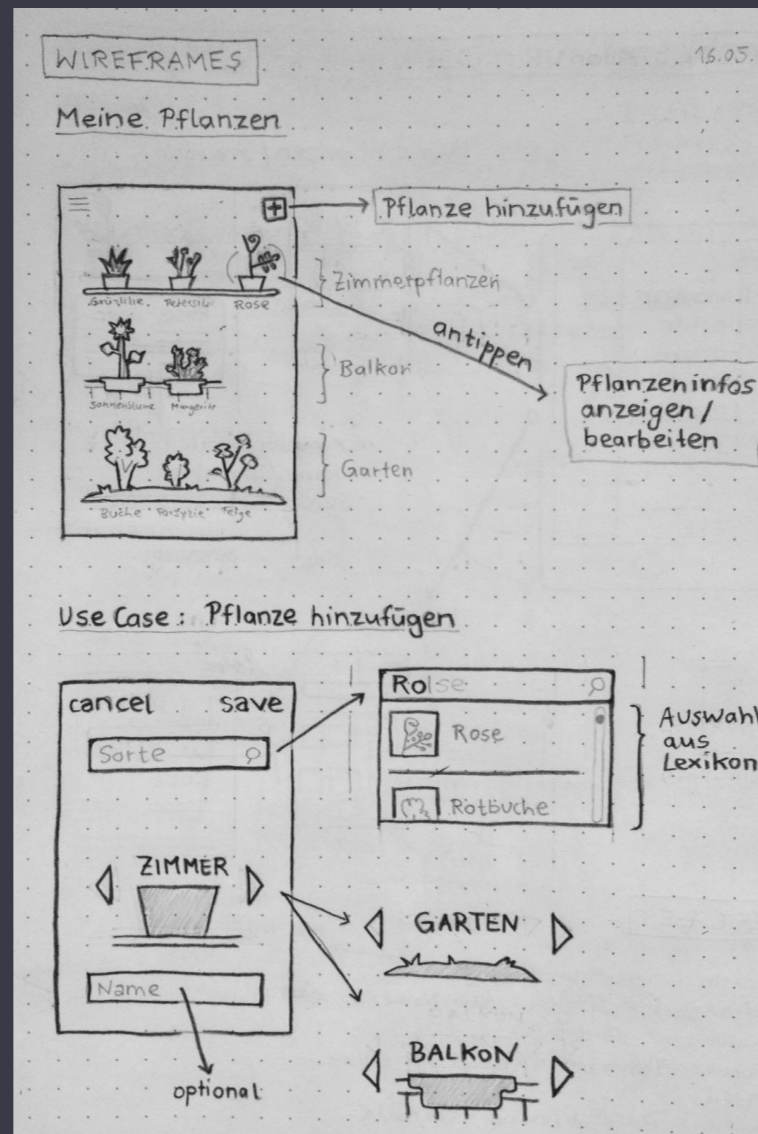 WIREFRAMES
16.05.
Meine Pflanzen
Pflanze hinzufügen
Grünlilie Petersilie Rose
Zimmerpflanzen
antippen
Sonnenblume Margerite
Balkon
Pflanzeninfos
anzeigen /
bearbeiten
Garten
Buche Forsytie
Use Case: Pflanze hinzufügen
cancel save
Sorte
Rolse
Rose
Rotbuche
Auswahl
aus
Lexikon
ZIMMER
GARTEN
Name
BALKON
optional